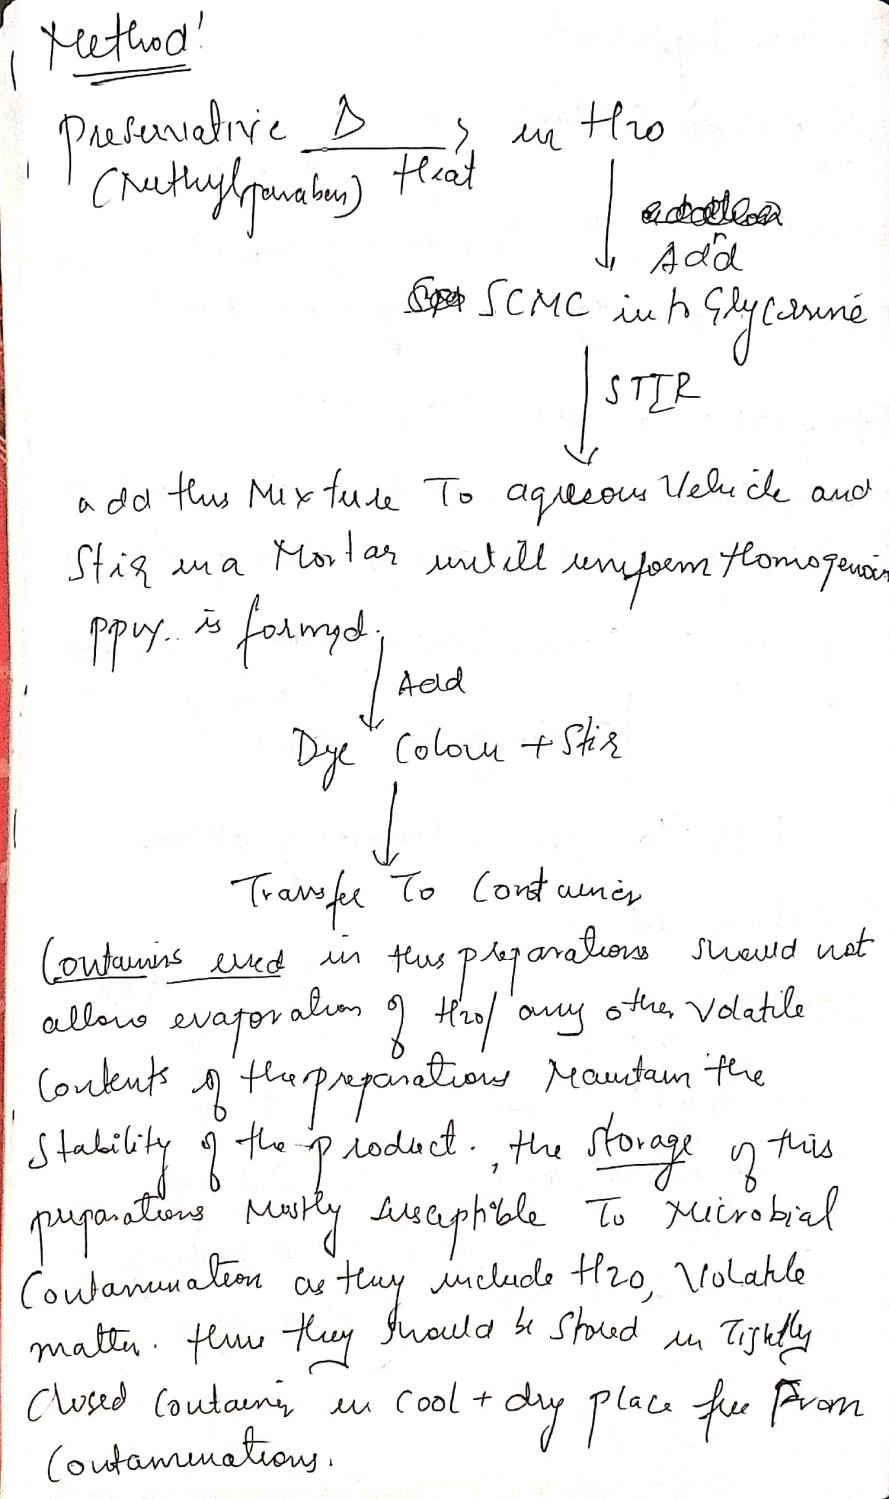 Method!
Preservative Δ → in H2O
(Methylparaben) Heat
Add
SCMC into Glycerine
STIR
add this Mixture To aqueous Vehicle and
Stir in a Mortar untill uniform Homogenous
ppry. is formed.
Add
Dye Colour + Stir
Transfer To Container
Containers used in this preparations should not
allow evaporation of H2O/ any other Volatile
Contents of the preparations Maintain the
Stability of the product., the storage of this
preparations Mostly susceptible To Microbial
Contamination as they include H2O, Volatile
matter. thus they should be stored in Tightly
Closed Container in cool + dry place free From
Contaminations.